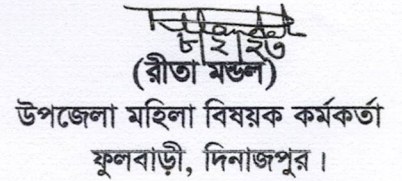 ৮|২|২৩
(রীতা মন্ডল)
উপজেলা মহিলা বিষয়ক কর্মকর্তা
ফুলবাড়ী, দিনাজপুর।